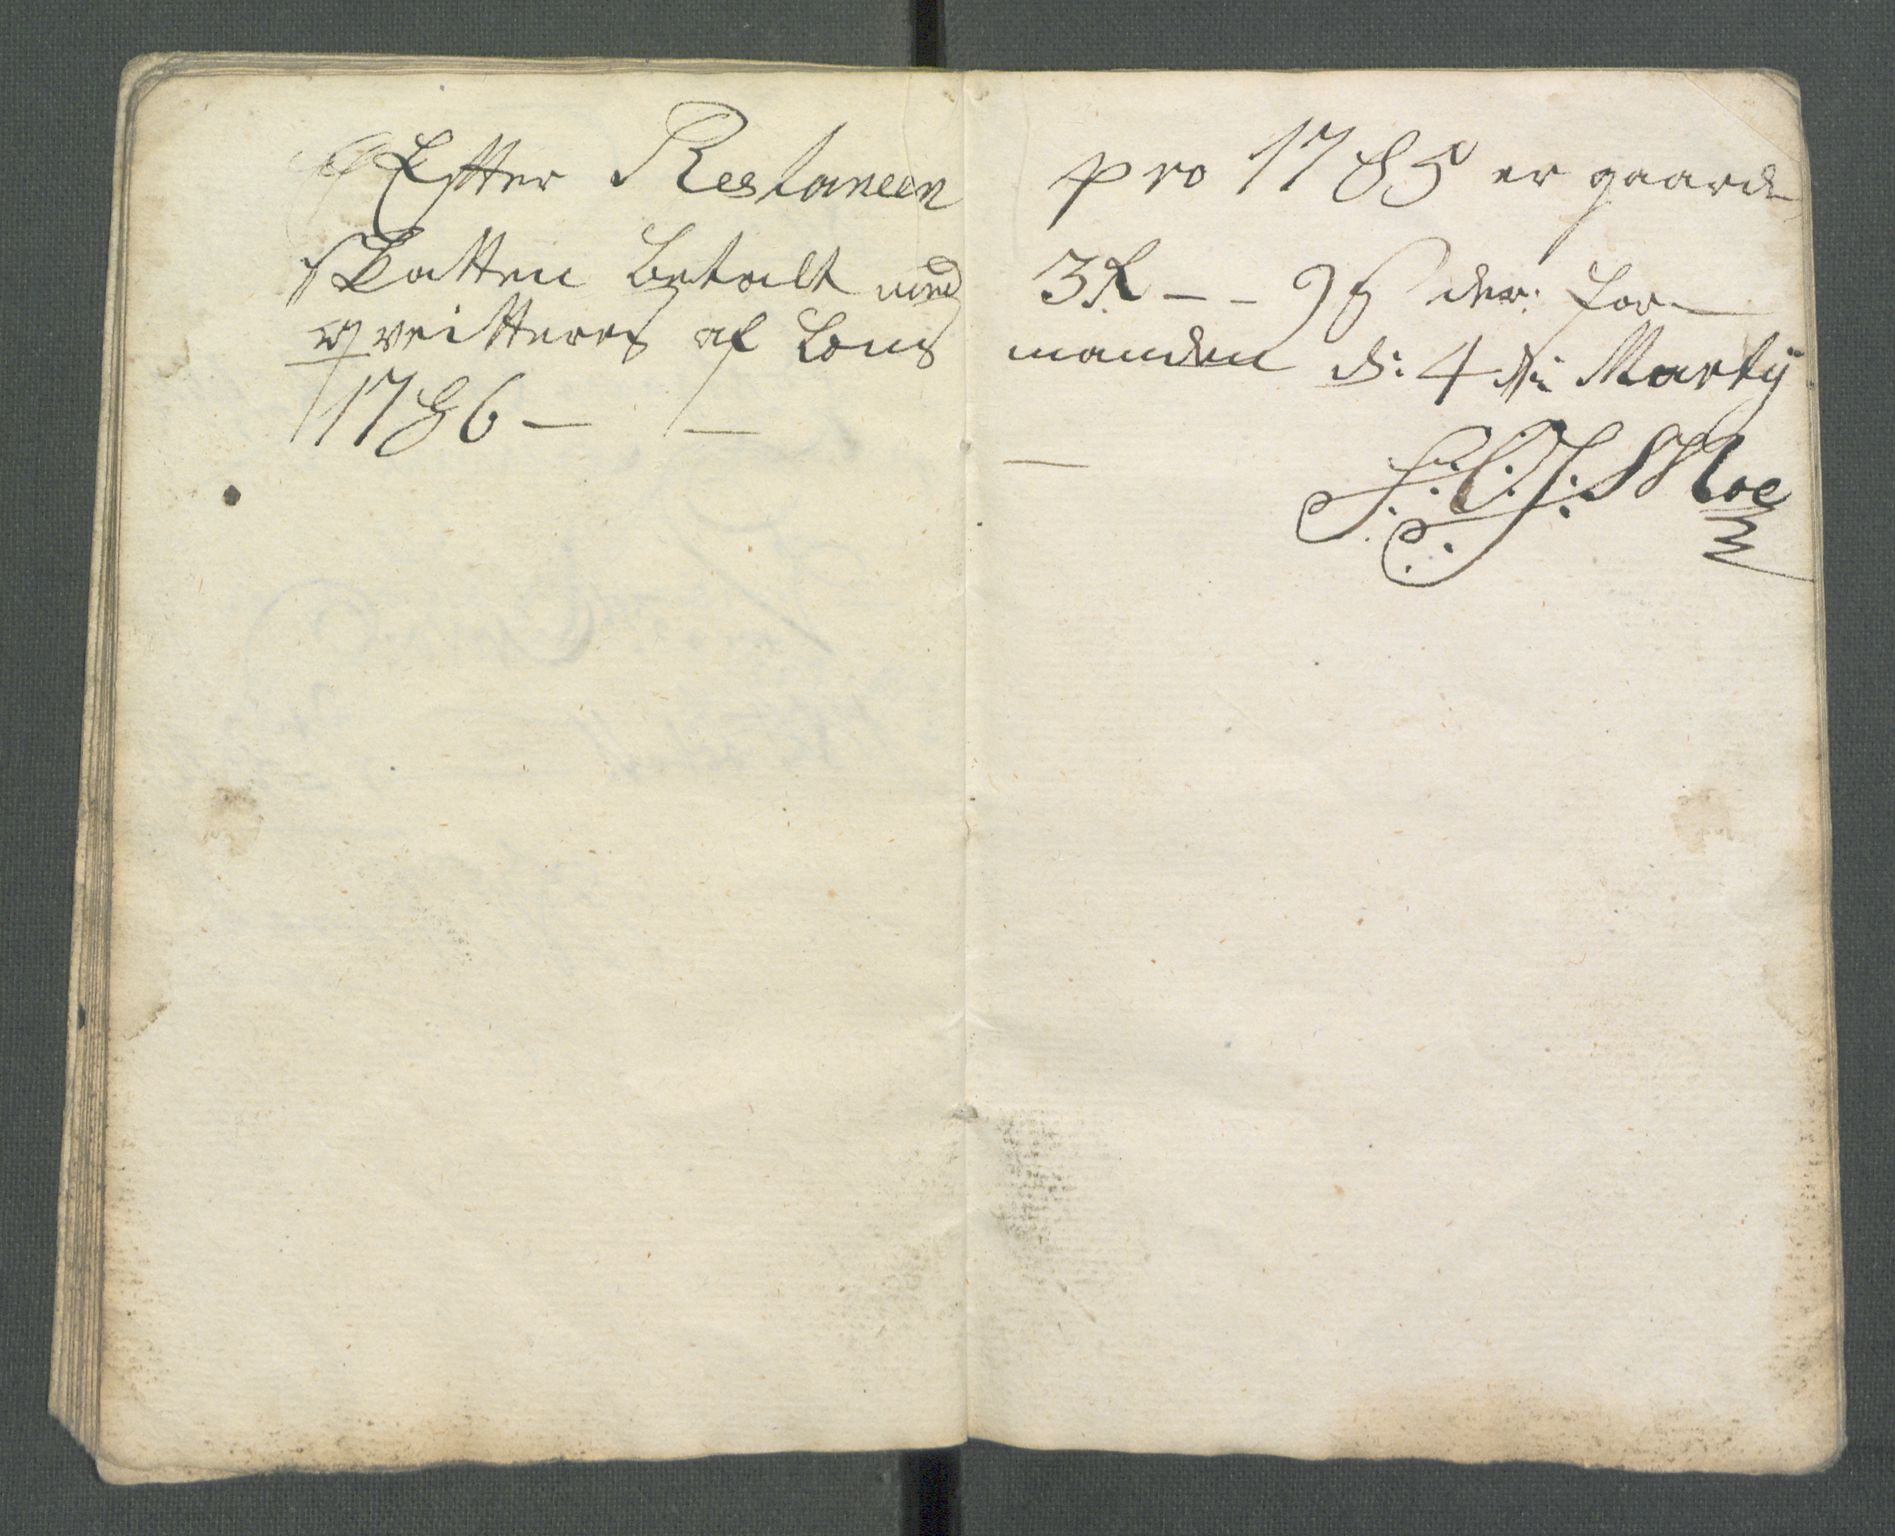 Efter Restancen pro 1785 er gaarde
skatten betalt med 3R – – 9 ß der: for
qvitteres af Lens manden d: 4 de Marty
1786 –  –  –
S:C:J:Moe